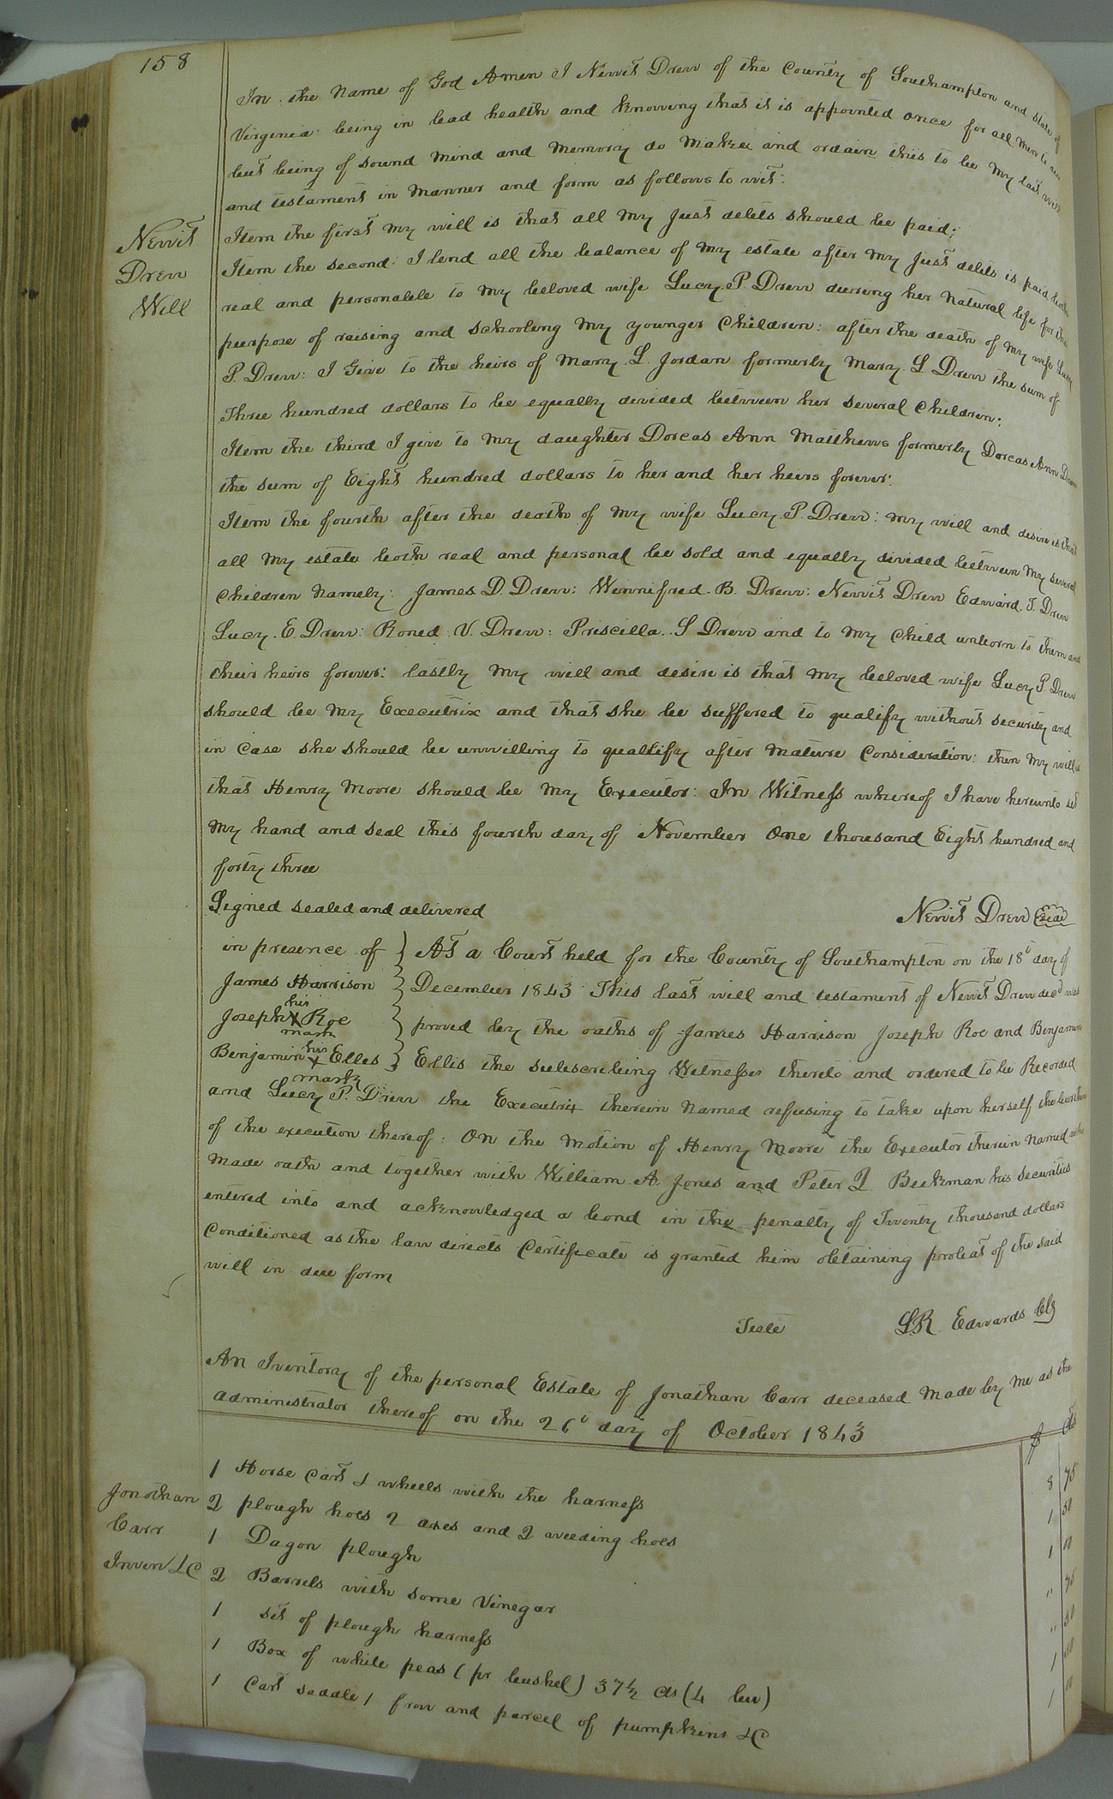 158
In the Name of God Amen I Newit Drew of the County of Southampton and State of
Virginia: being in bad health and knowing that it is appointed once for all Men to
but being of sound Mind and Memory do Make and ordain this to be My last will
and testament in Manner and form as follows to wit:
Newit
Drew
Will
Item the first My will is that all My Just debts should be paid:
Item the second: I lend all the balance of My estate after My Just debts is paid both
real and personable to My beloved wife Lucy P Drew during her Natural life for the
purpose of raising and schooling My younger Children: after the death of My wife Lucy
P. Drew: I Give to the heirs of Mary L Jordan formerly Mary L Drew the sum of
Three hundred dollars to be equally divided between her several Children:
Item the third I give to My daughter Dorcas Ann Matthews formerly Dorcas Ann Drew
the sum of Eight hundred dollars to her and her heirs forever:
Item the fourth after the death of My wife Lucy P Drew: My will and desire is that
all My estate both real and personal be sold and equally divided between My several
Children Namely: James D. Drew: Winnifred. B. Drew: Newit Drew Edward. T. Drew
Lucy. E. Drew: Roned. V. Drew: Priscilla. S Drew and to My Child unborn to them and
their heirs forever: lastly My will and desire is that My beloved wife Lucy P Drew
should be My Executrix and that she be suffered to qualify without security and
in Case she should be unwilling to qualify after Mature Consideration: then My will is
that Henry Moore should be My Executor: In Witness whereof I have hereunto set
My hand and seal this fourth day of November One thousand Eight hundred and
forty three
Signed sealed and delivered
Newit Drew Seal
in presence of
James Harrison
his
Joseph X Roe
mark
Benjamin his X Elles
mark
At a Court held for the County of Southampton on the 18t day of
December 1843 This last will and testament of Newit Drew decd was
proved by the oaths of James Harrison Joseph Roe and Benjamin
Ellis the subscribing Witnesses thereto and ordered to be Recorded
and Lucy P. Drew the Executrix therein Named refusing to take upon herself the burthen
of the execution thereof: On the Motion of Henry Moore the Executor therein Named who
Made oath and together with William A. Jones and Peter J Beekman his Securities
entered into and acknowledged a bond in the penalty of Twenty thousand dollars
Conditioned as the law directs Certificate is granted him obtaining probat of the said
will in due form
Teste
L R Edwards Clk
An Inventory of the personal Estate of Jonathan Carr deceased Made by Me as the
administrator thereof on the 26t day of October 1843
$ Cts
Jonathan
Carr
Inven &C
1 Horse Cart & wheels with the harness 8 75
2 plough hoes 2 axes and 2 weeding hoes 1 50
1 Dagon plough 1 00
2 Barrels with some Vinegar " 75
1 set of plough harness " 50
1 Box of white peas (pr bushel) 37½ cts (4 bu) 1 50
1 Cart saddle 1 frow and parcel of pumpkins &C 1 00